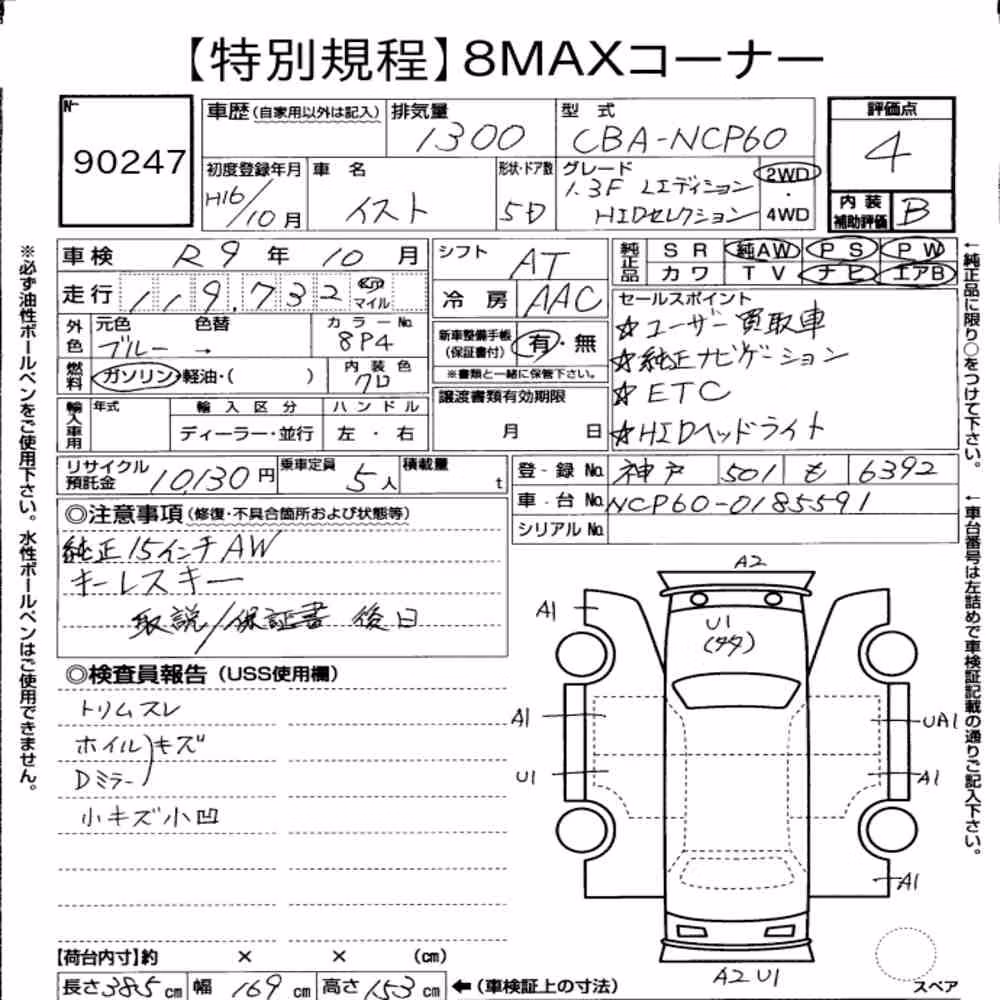 【特別規程】8MAXコーナー
No.
90247
車歴(自家用以外は記入) 排気量 型式 評価点
1300 CBA-NCP60 4
初度登録年月 車名 形状・ドア数 グレード 2WD・4WD
H16/10月 イスト 5D 1.3F Lエディション HIDセレクション
内装補助評価 B
車検 R9年10月 シフト AT
純正品 SR 純AW PS PW
カワ TV ナビ エアB
走行 119,732 Km マイル 冷房 AAC
セールスポイント
☆ユーザー買取車
☆純正ナビゲーション
☆ETC
☆HIDヘッドライト
外色 元色 色替 カラーNo.
ブルー → 8P4
新車整備手帳(保証書付) 有・無
※書類と一緒に保管下さい。
燃料 ガソリン・軽油・( ) 内装色
クロ
譲渡書類有効期限
月 日
輸入車用 年式 輸入区分 ハンドル
ディーラー・並行 左・右
リサイクル預託金 10,130円 乗車定員 5人 積載量 t
登・録No. 神戸 501 も 6392
車・台No. NCP60-0185591
シリアルNo.
◎注意事項(修復・不具合箇所および状態等)
純正15インチAW
キーレスキー
取説/保証書 後日
◎検査員報告(USS使用欄)
トリムスレ
ホイル)キズ
Dミラー
小キズ小凹
A2
A1
U1
(タタ)
A1
UA1
U1
A1
A1
A2 U1
スペア
【荷台内寸】約 × × (cm)
長さ385cm 幅169cm 高さ153cm ←(車検証上の寸法)
※必ず油性ボールペンをご使用下さい。水性ボールペンはご使用できません。
←純正品に限り○をつけて下さい。
←車台番号は左詰めで車検証記載の通りご記入下さい。